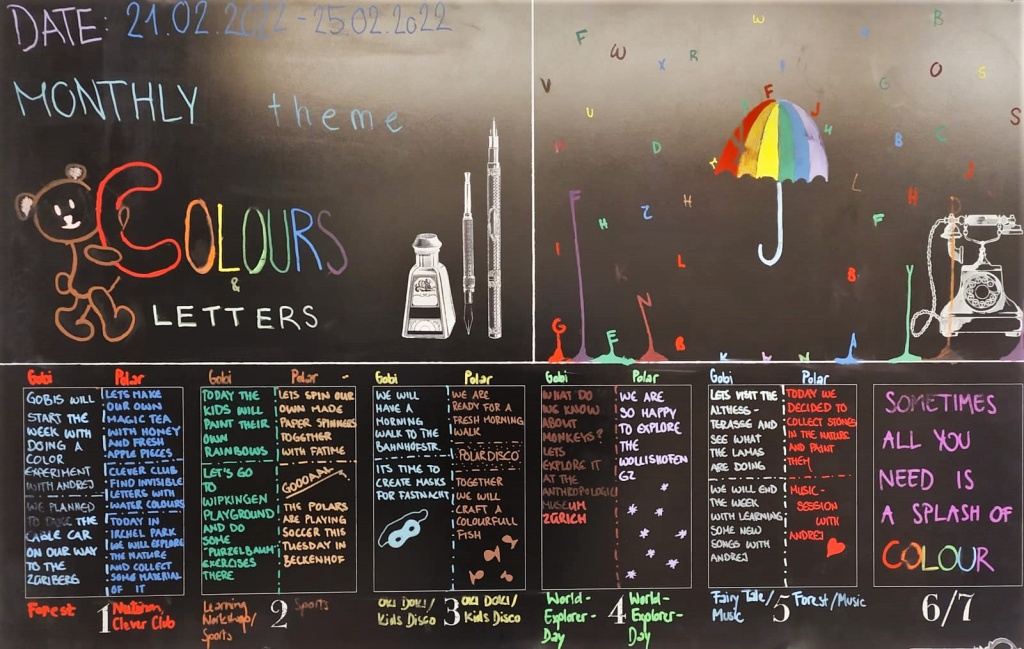 DATE: 21.02.2022 - 25.02.2022
MONTHLY theme
COLOURS
&
LETTERS
Gobi
GOBIS WILL
START THE
WEEK WITH
DOING A
COLOR
EXPERIMENT
WITH ANDREJ
WE PLANNED
TO TAKE THE
CABLE CAR
ON OUR WAY
TO THE
ZÜRIBERG
Polar
LETS MAKE
OUR OWN
MAGIC TEA
WITH HONEY
AND FRESH
APPLE PIECES
CLEVER CLUB
FIND INVISIBLE
LETTERS WITH
WATER COLOURS
TODAY IN
IRCHEL PARK
WE WILL EXPLORE
THE NATURE
AND COLLECT
SOME MATERIAL
OF IT
Forest
1
Clever Club
Gobi
TODAY THE
KIDS WILL
PAINT THEIR
OWN
RAINBOWS
LET'S GO
TO
WIPKINGEN
PLAYGROUND
AND DO
SOME
"PURZELBAUM"
EXERCISES
THERE
Polar
LETS SPIN OUR
OWN MADE
PAPER SPINNERS
TOGETHER
WITH FATIME
GOOOAAL
THE POLARS
ARE PLAYING
SOCCER THIS
TUESDAY IN
BECKENHOF
Learning
Workshop/
Sports
2
Sports
Gobi
WE WILL
HAVE A
MORNING
WALK TO THE
BAHNHOFSTR.
ITS TIME TO
CREATE MASKS
FOR FASTNACHT
Polar
WE ARE
READY FOR A
FRESH MORNING
WALK
POLARDISCO
TOGETHER
WE WILL
CRAFT A
COLOURFULL
FISH
Oki Doki/
Kids Disco
3
Oki Doki/
Kids Disco
Gobi
WHAT DO
WE KNOW
ABOUT
MONKEYS?
LETS
EXPLORE IT
AT THE
ANTHROPOLOGIC
MUSEUM
ZÜRICH
Polar
WE ARE
SO HAPPY
TO EXPLORE
THE
WOLLISHOFEN
GZ
World-
Explorer-
Day
4
World-
Explorer-
Day
Gobi
LETS VISIT THE
ALTHESS-
TERASSE AND
SEE WHAT
THE LAMAS
ARE DOING
WE WILL END
THE WEEK
WITH LEARNING
SOME NEW
SONGS WITH
ANDREJ
Polar
TODAY WE
DECIDED TO
COLLECT STONES
IN THE NATURE
AND PAINT
THEM
MUSIC-
SESSION
WITH
ANDREJ
Fairy Tale/
Music
5
Forest/Music
SOMETIMES
ALL YOU
NEED IS
A SPLASH OF
COLOUR
6/7